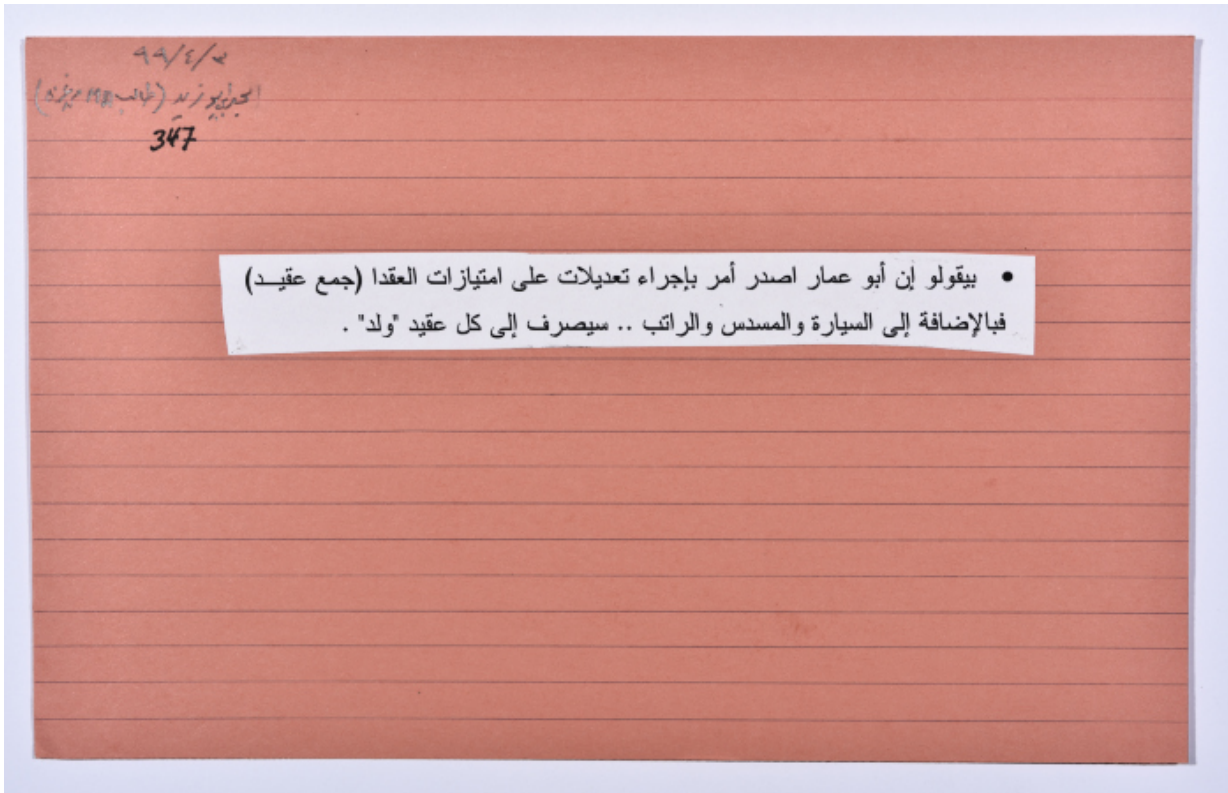 ٩٩/٤/٣
زيد (طالب
347
• بيقولو إن أبو عمار اصدر أمر بإجراء تعديلات على امتيازات العقدا (جمع عقيــد)
فبالإضافة إلى السيارة والمسدس والراتب .. سيصرف إلى كل عقيد "ولد" .